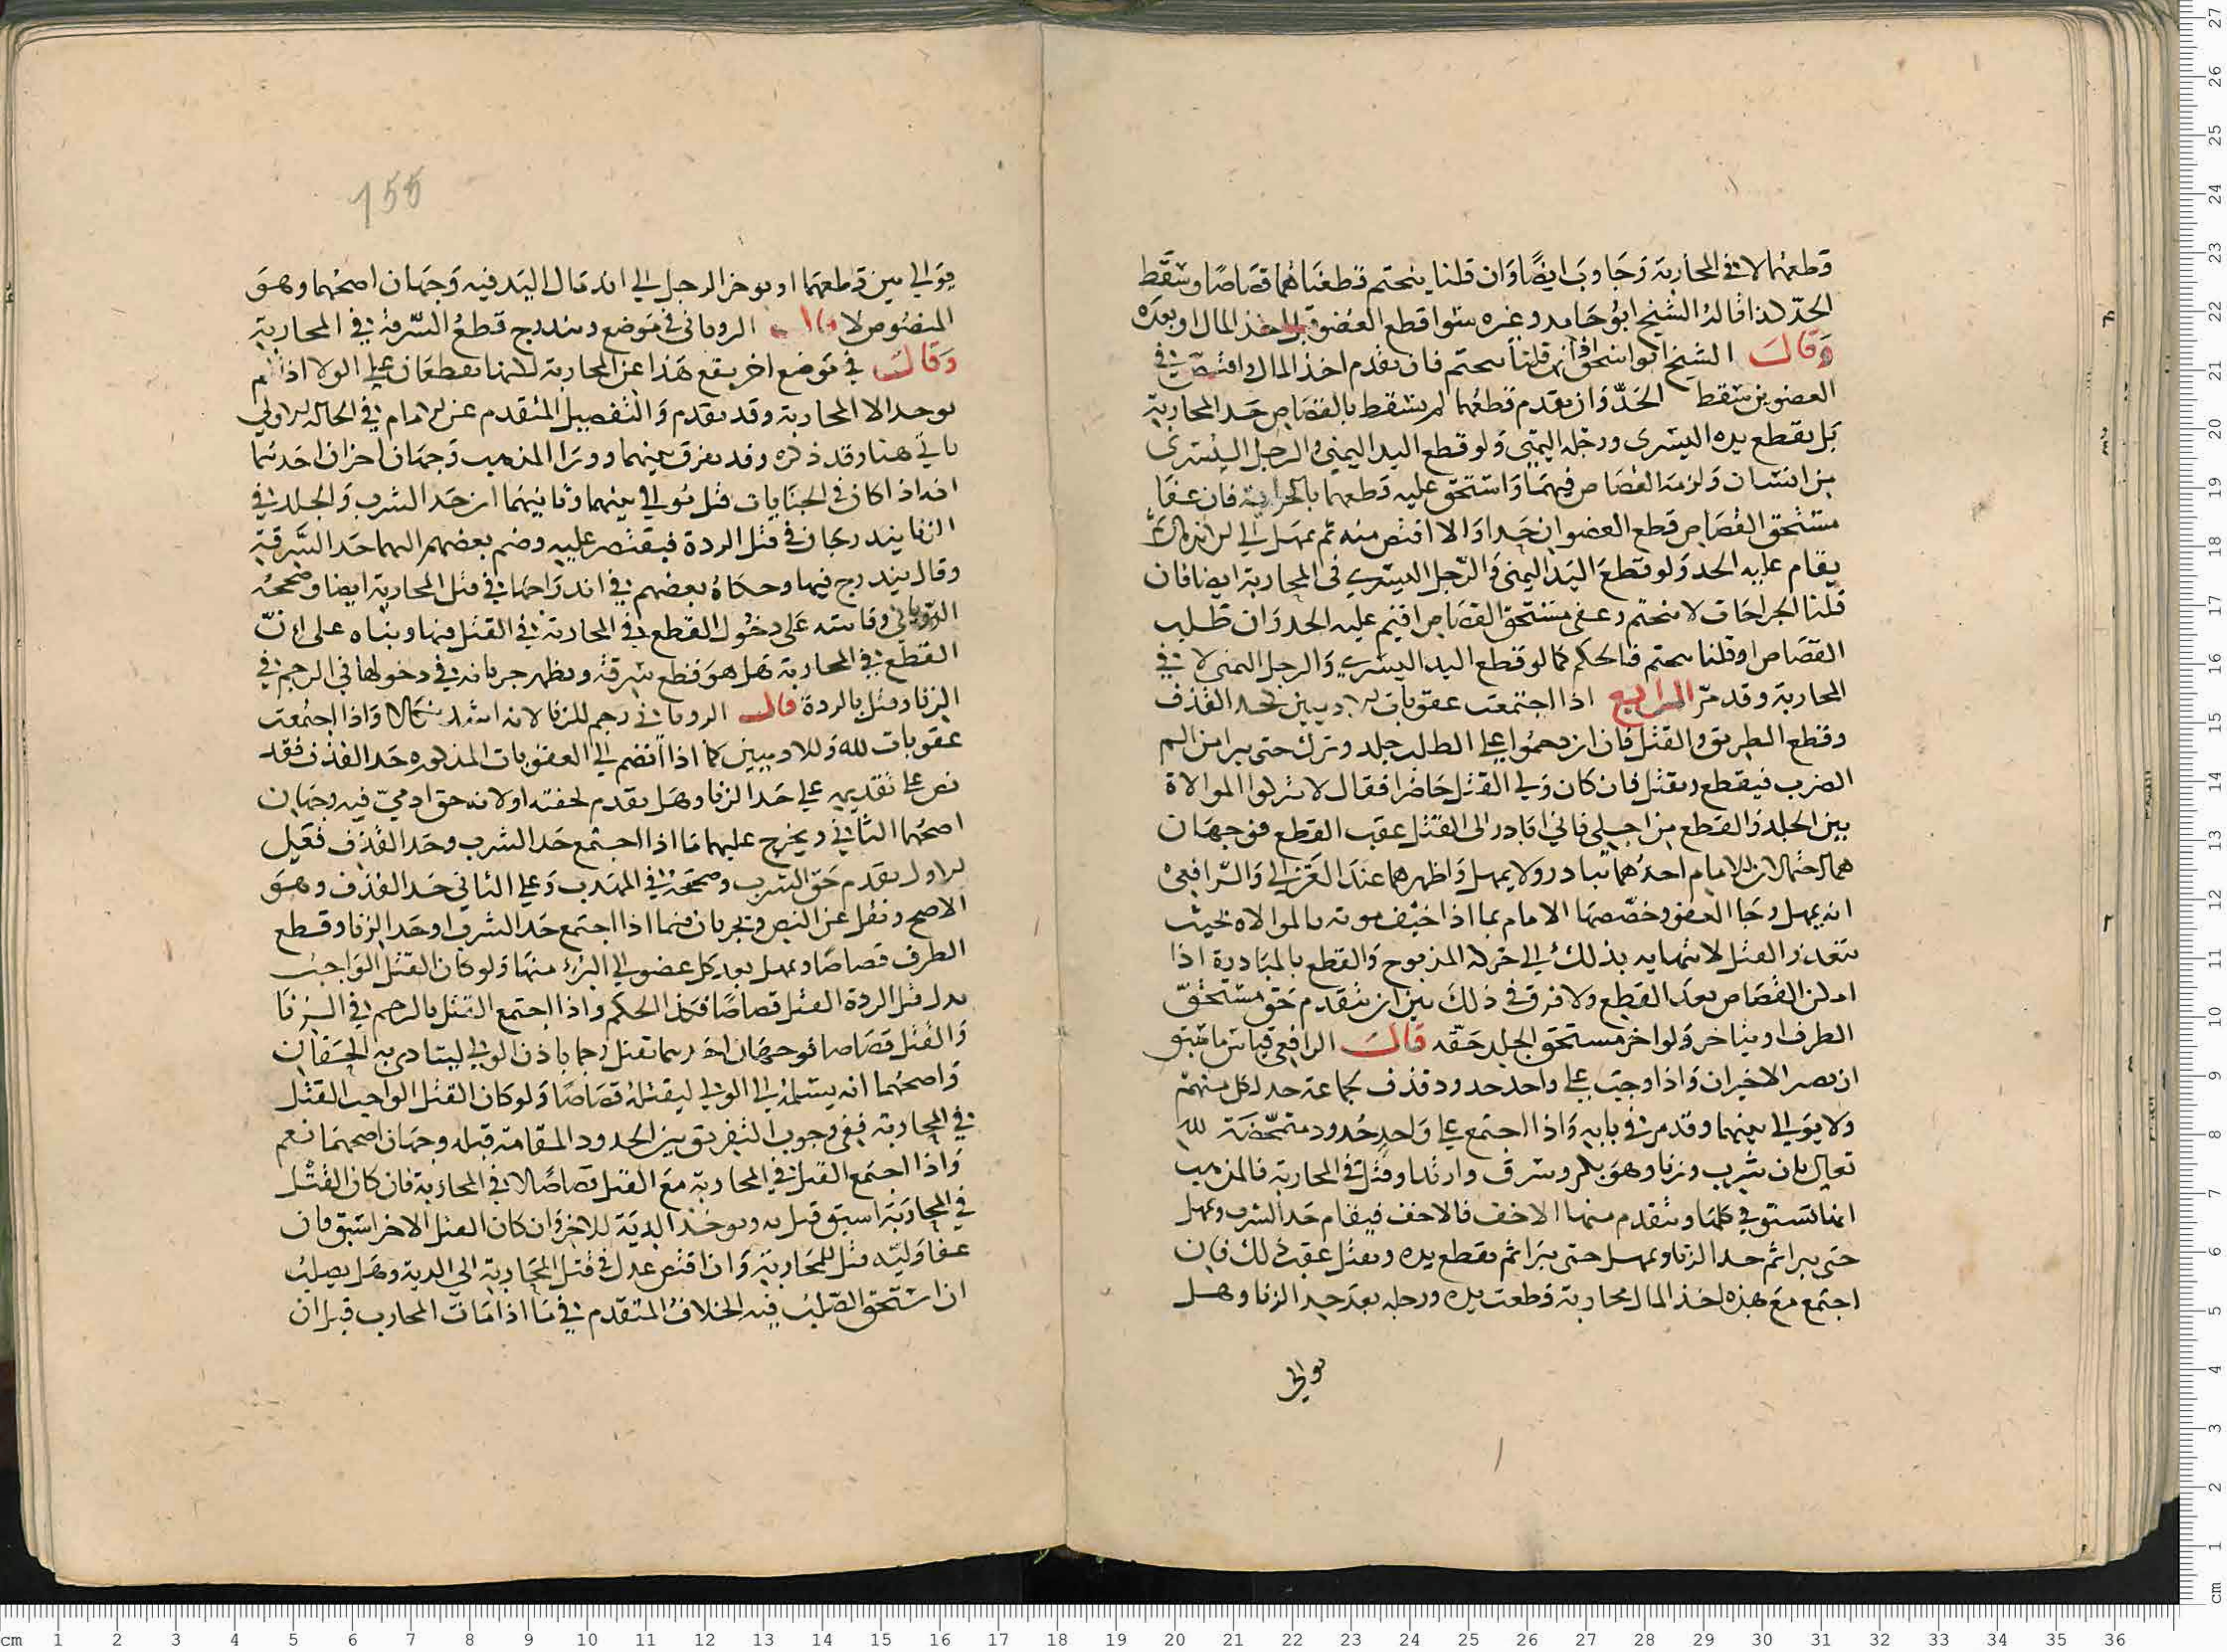 قطعهما لا في المحاربة وجا وب ايضا وان قلنا ينحتم قطعناهما قصاصا وسقط
الحد لذا قاله الشيخ ابو حامد وغيره سوا قطع العضو قبل اخذ المال او بعده
وقال الشيخ ابو اسحق اذا قلنا ينحتم فان تقدم اخذ المال واقتص في
العضوين سقط الحد وان تقدم قطعهما لم يسقط بالقصاص حد المحاربة
بل يقطع يده اليسرى ورجله اليمنى ولو قطع اليد اليمنى والرجل اليسرى
من انسان ولزمه القصاص فيهما واستحق عليه قطعهما بالحرابة فان عفا
مستحق القصاص قطع العضوان حدا والا اقتص منه ثم يمهل الى اندمال ثم
يقام عليه الحد ولو قطع اليد اليمنى والرجل اليسرى في المحاربة ايضا فان
قلنا الجراحات لا تنحتم وعفى مستحق القصاص اقيم عليه الحد وان طلب
القصاص او قلنا ينحتم فالحكم كما لو قطع اليد اليسرى والرجل اليمنى لا في
المحاربة وقد مر الرابع اذا اجتمعت عقوبات لادميين كحد القذف
وقطع الطريق والقتل فان ازدحموا على الطلب جلد وترك حتى يبرا من الم
الضرب فيقطع ويقتل فان كان ولي القتل حاضرا فقال لا تتركوا الموالاة
بين الجلد والقطع من اجلي فاني ابادر الى القتل عقب القطع فوجهان
هما احتمالان للامام احدهما يبادر ولا يمهل واظهرهما عند الغزالي والرافعي
انه يمهل وجا العفو وخصصها الامام بما اذا خيف موته بالموالاة بحيث
يتعذر القتل لانتهايه بذلك الى حركة المذبوح والقطع بالمبادرة اذا
امكن القصاص بعد القطع ولا فرق في ذلك بين ان يتقدم حق مستحق
الطرف او يتاخر ولو اخر مستحق الجلد حقه قال الرافعي قياس ما سبق
ان يصبر الاخيران واذا وجب على واحد حدود قذف لجماعة حد لكل منهم
ولا يوالى بينهما وقد مر في بابه واذا اجتمع على واحد حدود متمحضة لله
تعالى بان شرب وزنا وهو بكر وسرق وارتد او قتل في المحاربة فالمذهب
انها تستوفي كلها ويقدم منها الاخف فالاخف فيقام حد الشرب ويمهل
حتى يبرا ثم حد الزنا ويمهل حتى يبرا ثم يقطع يده ويقتل عقب ذلك فان
اجتمع مع هذه اخذ المال محاربة قطعت يده ورجله بعد حد الزنا وهل
يوالي
155
يوالي بين قطعهما او يوخر الرجل الى اندمال اليد فيه وجهان اصحهما وهو
المنصوص لا قال الروياني في موضع ويندرج قطع السرقة في المحاربة
وقال في موضع اخر يقع هذا عن المحاربة لانهما يقطعان على الولا اذا لم
يوجد الا المحاربة وقد تقدم والتفصيل المتقدم عن الامام في الحالة الاولى
ياتي هنا وقد ذكره وقد يفرق بينهما وورا المذهب وجهان اخران احدهما
انه اذا كان في الجنايات قتل يوالي بينهما وثانيهما ان حد الشرب والجلد في
الزنا يندرجان في قتل الردة فيقتصر عليه وضم بعضهم اليهما حد السرقة
وقال يندرج فيها وحكاه بعضهم في اندراجها في قتل المحاربة ايضا وصححه
الروياني وقاسه على دخول القطع في المحاربة في القتل فيها وبناه على ان
القطع في المحاربة هل هو قطع سرقة ويظهر جريانه في دخولها في الرجم في
الزنا وقتل بالردة قال الروياني رجم للزنا لانه اشد نكالا واذا اجتمعت
عقوبات لله وللادميين كما اذا انضم الى العقوبات المذكورة حد القذف فقد
نص على تقديمه على حد الزنا وهل يقدم لخفته او لانه حق ادمي فيه وجهان
اصحهما الثاني ويخرج عليهما ما اذا اجتمع حد الشرب وحد القذف فعلى
الاول يقدم حق الشرب وصححه في المهذب وعلى الثاني حد القذف وهو
الاصح ونقل عن النص ويجريان فيما اذا اجتمع حد الشرب او حد الزنا وقطع
الطرف قصاصا ويمهل بعد كل عضو الى البرء منها ولو كان القتل الواجب
بدل قتل الردة القتل قصاصا فكذا الحكم واذا اجتمع القتل بالرجم في الزنا
والقتل قصاصا فوجهان احدهما يقتل رجما باذن الولي ليتادى به الحقان
واصحهما انه يسلم الى الولي ليقتله قصاصا ولو كان القتل الواجب القتل
في المحاربة ففي وجوب التفريق بين الحدود المقامة قبله وجهان اصحهما نعم
واذا اجتمع القتل في المحاربة مع القتل قصاصا لا في المحاربة فان كان القتل
في المحاربة اسبق قتل به ويوخذ الدية للاخر وان كان القتل الاخر اسبق فان
عفا وليه قتل للمحاربة وان اقتص عدل في قتل المحاربة الى الدية وهل يصلب
ان استحق الصلب فيه الخلاف المتقدم في ما اذا مات المحارب قبل ان